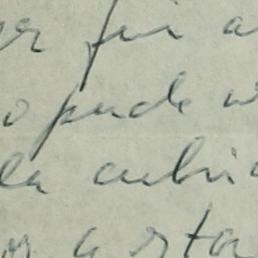 er fui a
o pude
la cubi
or a sta